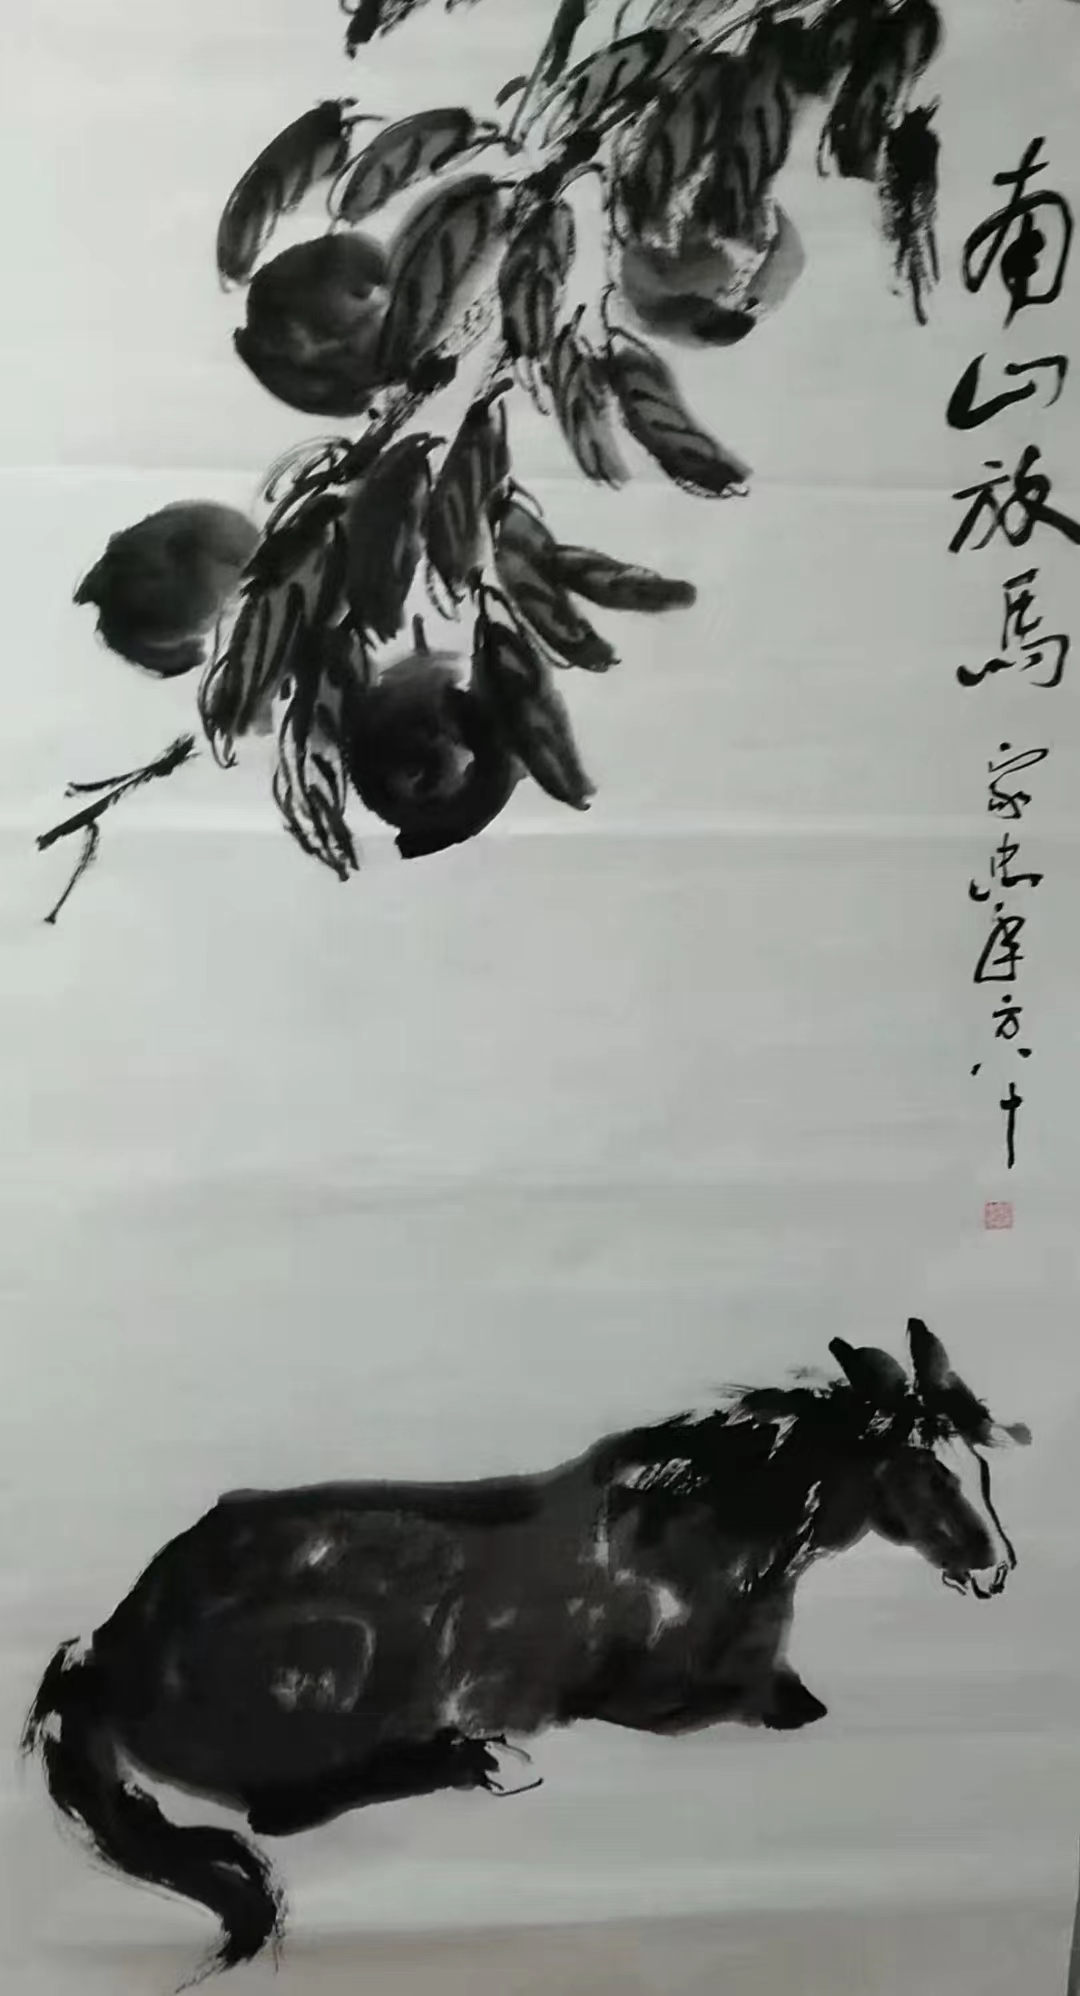 南山放馬
家忠年方八十